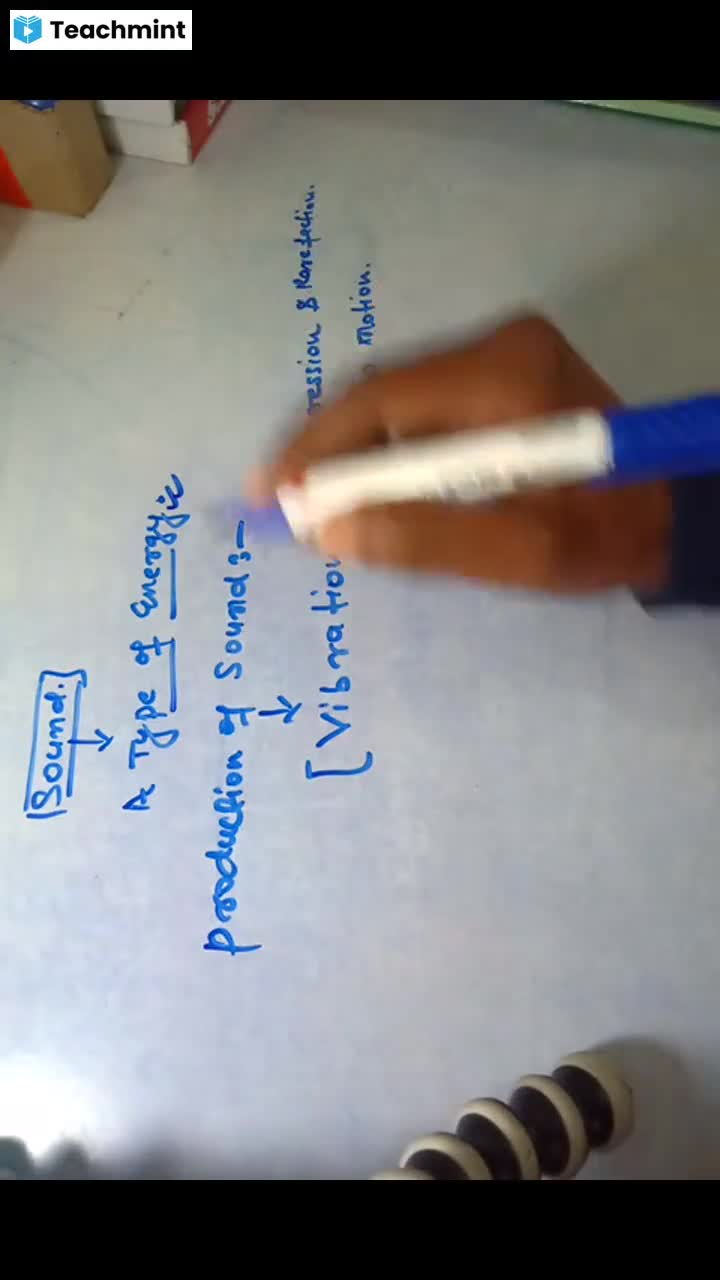 Teachmint
Sound.
↓
A Type of Energy
production of Sound:-
↓
[Vibration
& Rarefaction.
Motion.